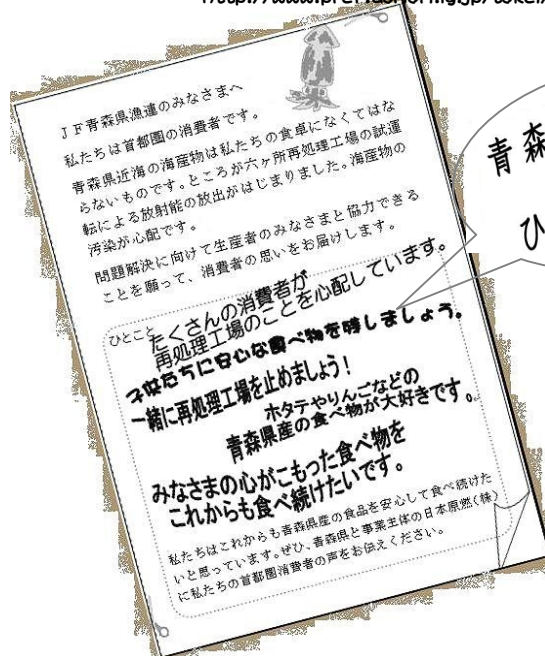 JF青森県漁連のみなさまへ
私たちは首都圏の消費者です。
青森県近海の海産物は私たちの食卓になくてはな
らないものです。ところが六ヶ所再処理工場の試運
転による放射能の放出がはじまりました。海産物の
汚染が心配です。
問題解決に向けて生産者のみなさまと協力できる
ことを願って、消費者の思いをお届けします。
ひとこと
たくさんの消費者が
再処理工場のことを心配しています。
子供たちに安心な食べ物を残しましょう。
一緒に再処理工場を止めましょう！
ホタテやりんごなどの
青森県産の食べ物が大好きです。
みなさまの心がこもった食べ物を
これからも食べ続けたいです。
私たちはこれからも青森県産の食品を安心して食べ続けた
いと思っています。ぜひ、青森県と事業主体の日本原燃(株)
に私たちの首都圏消費者の声をお伝えください。
青森
ひ